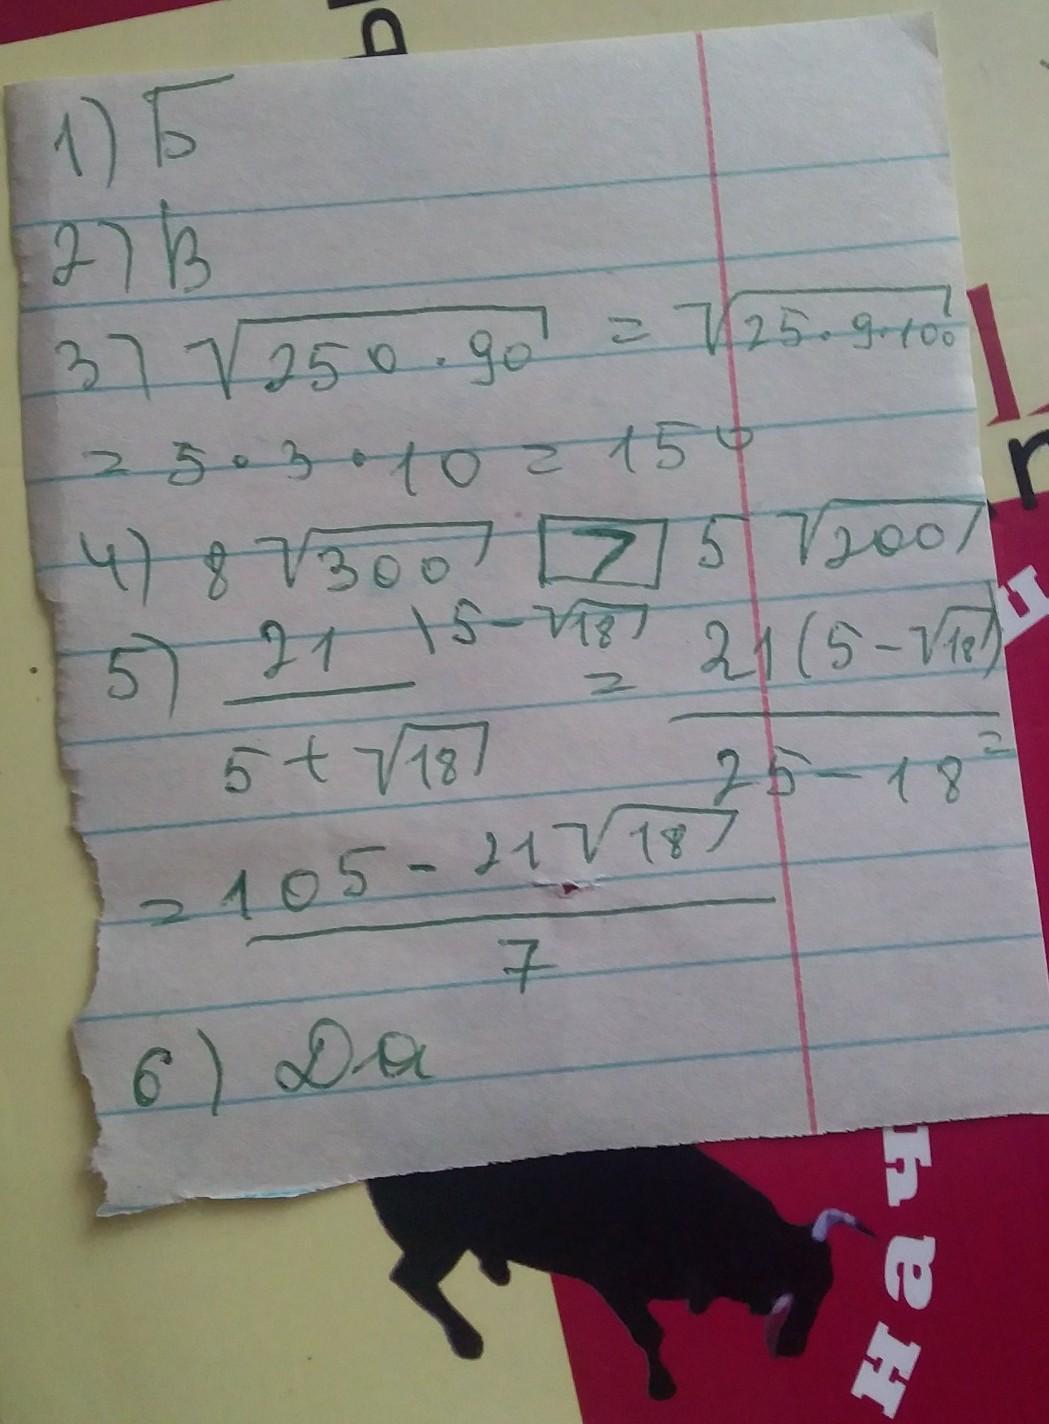 1) Б
2) В
3) √250·90 = √25·9·100
= 5·3·10 = 150
4) 8√300 > 5√200
5) 21 \5-√18 / 5+√18 = 21(5-√18) / 25-18 =
= 105-21√18 / 7
6) Да
Нау